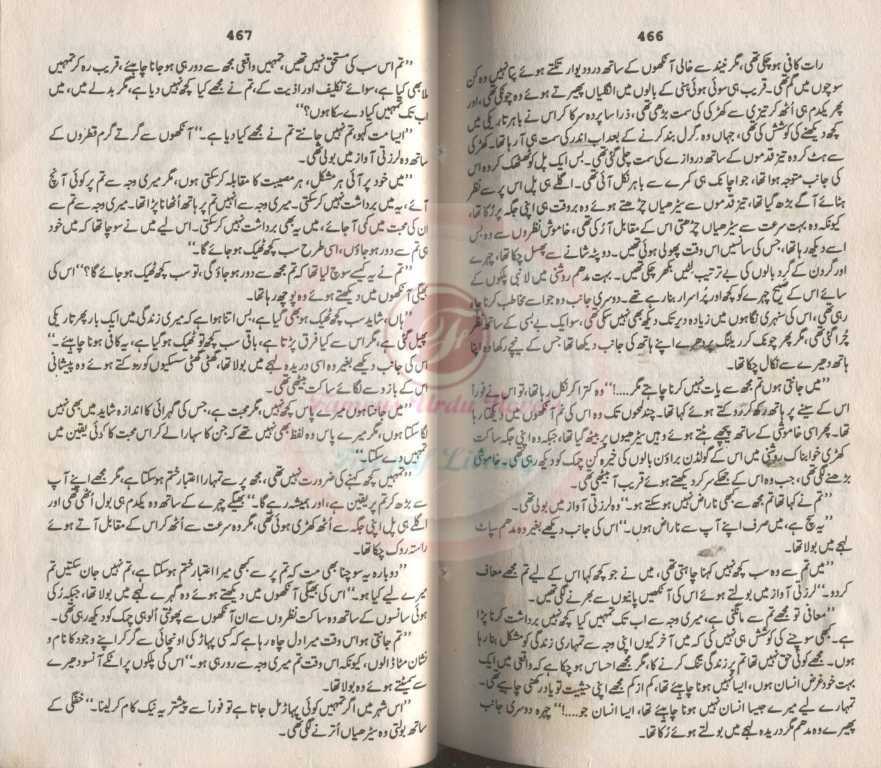 466
رات کافی ہو چکی تھی، مگر نیند سے خالی آنکھوں کے ساتھ در و دیوار تکتے ہوئے پتا نہیں وہ کن
سوچوں میں گم تھی۔ قریب ہی سوئی ہوئی ہنی کے بالوں میں انگلیاں پھیرتے ہوئے وہ چونکی تھی، اور
پھر یکدم ہی اُٹھ کر تیزی سے کھڑکی کی سمت بڑھی تھی، ذرا سا پردہ سرکا کر اس نے باہر تاریکی میں
کچھ دیکھنے کی کوشش کی تھی، جہاں وہ گرل بند کرنے کے بعد اب اندر کی سمت ہی آ رہا تھا۔ کھڑکی
سے ہٹ کر وہ تیز قدموں کے ساتھ دروازے کی سمت چلی گئی تھی۔ بس ایک پل کو ٹھٹھک کر وہ اس
کی جانب متوجہ ہوا تھا، جو اچانک ہی کمرے سے باہر نکل آئی تھی۔ اگلے ہی پل اس پر سے نظر
ہٹائے آگے بڑھ گیا تھا، تیز قدموں سے سیڑھیاں چڑھتے ہوئے وہ بروقت ہی اپنی جگہ پر رُکا تھا،
کیونکہ وہ بہت سرعت سے سیڑھیاں چڑھتی اس کے مقابل آ رُکی تھی، خاموش نظروں سے وہ بس
اسے دیکھ رہا تھا، جس کی سانسیں اس وقت پھولی ہوئی تھیں۔ دوپٹہ شانے سے پھسل چکا تھا، چہرے
اور گردن کے گرد بالوں کی بے ترتیب لٹیں بکھر چکی تھیں۔ بہت مدھم روشنی میں لانبی پلکوں کے
سائے اس کے صبیح چہرے کو کچھ اور پُراسرار بنا رہے تھے۔ دوسری جانب وہ جو اسے مخاطب کرنا چاہ
رہی تھی، اس کی سنہری نگاہوں میں زیادہ دیر تک دیکھ بھی نہیں سکی تھی، سو ایک بے بسی کے ساتھ نظر
چُرا گئی تھی، مگر پھر چونک کر ریلنگ پر دھرے اپنے ہاتھ کی جانب دیکھا تھا جس کے نیچے رکھا وہ اپنا
ہاتھ دھیرے سے نکال چکا تھا۔
”میں جانتی ہوں تم مجھ سے بات نہیں کرنا چاہتے مگر....!“ وہ کترا کر نکل رہا تھا، تو اس نے فوراً
اس کے سینے پر ہاتھ رکھ کر روکتے ہوئے کہا تھا۔ چند لمحوں تک وہ اس کی نم آنکھوں میں دیکھتا رہا
تھا۔ پھر اسی خاموشی کے ساتھ پیچھے ہٹتے ہوئے وہیں سیڑھیوں پر بیٹھ گیا تھا، جبکہ وہ اپنی جگہ ساکت
کھڑی خوابناک روشنی میں اس کے گولڈن براؤن بالوں کی خیرہ کن چمک کو دیکھ رہی تھی۔ خاموشی
بڑھنے لگی تھی، جب وہ اس کے جھکے سر کو دیکھتے ہوئے قریب آ بیٹھی تھی۔
”تم نے کہا تھا تم مجھ سے کبھی ناراض نہیں ہو سکتے ہو۔“ وہ لرزتی آواز میں بولی تھی۔
”یہ سچ ہے، میں صرف اپنے آپ سے ناراض ہوں۔“ اس کی جانب دیکھے بغیر وہ مدھم سپاٹ
لہجے میں بولا تھا۔
”میں تم سے وہ سب کچھ نہیں کہنا چاہتی تھی، میں نے جو کچھ کہا اس کے لیے تم مجھے معاف
کر دو۔“ لرزتی آواز میں بولتے ہوئے اس کی آنکھیں پانیوں سے بھرنے لگی تھیں۔
”معافی تو مجھے تم سے مانگنی ہے، میری وجہ سے اب تک تمہیں کیا کچھ نہیں برداشت کرنا پڑا
ہے۔ کبھی سوچنے کی کوشش ہی نہیں کی کہ میں آخر کیوں اپنی وجہ سے تمہاری زندگی کو مشکل بنا رہا
ہوں۔ مجھے کوئی حق نہیں تھا تم پر زندگی تنگ کرنے کا، مگر مجھے احساس ہو چکا ہے کہ واقعی میں ایک
بہت خودغرض انسان ہوں، ایسا نہیں ہونا چاہئے تھا، کم از کم مجھے اپنی حیثیت تو یاد رکھنی چاہیے تھی۔
تمہارے لیے میرے جیسا انسان نہیں ہونا چاہئے تھا، ایسا انسان جو....!“ چہرہ دوسری جانب
پھیرے وہ مدھم مگر دریدہ لہجے میں بولتے ہوئے رُکا تھا۔
467
”تم اس سب کی مستحق نہیں تھیں، تمہیں واقعی مجھ سے دور ہی ہو جانا چاہئے، قریب رہ کر تمہیں
ملا بھی کیا ہے، سوائے تکلیف اور اذیت کے، تم نے مجھے کیا کچھ نہیں دیا ہے، مگر بدلے میں، میں
اب تک تمہیں کیا دے سکا ہوں؟“
”ایسا مت کہو، تم نہیں جانتے تم نے مجھے کیا دیا ہے۔“ آنکھوں سے گرتے گرم قطروں کے
ساتھ وہ لرزتی آواز میں بولی تھی۔
”میں خود پر آئی ہر مشکل، ہر مصیبت کا مقابلہ کر سکتی ہوں، مگر میری وجہ سے تم پر کوئی آنچ
آئے، یہ میں برداشت نہیں کر سکتی۔ میری وجہ سے انہیں تم پر ہاتھ اُٹھانا پڑا تھا۔ میری وجہ سے تم سے
ان کی محبت میں کمی آ جائے، میں یہ بھی برداشت نہیں کر سکتی۔ اس لیے میں نے سوچا تھا کہ میں خود
ہی تم سے دور ہو جاؤں، اسی طرح سب کچھ ٹھیک ہو جائے گا۔“
”تم نے یہ کیسے سوچ لیا تھا کہ تم مجھ سے دور ہو جاؤ گی، تو سب کچھ ٹھیک ہو جائے گا؟“ اس کی
بھیگی آنکھوں میں دیکھتے ہوئے وہ پوچھ رہا تھا۔
”ہاں، شاید سب کچھ ٹھیک ہو بھی گیا ہے، بس اتنا ہوا ہے کہ میری زندگی میں ایک بار پھر تاریکی
پھیل گئی ہے، مگر اس سے کیا فرق پڑتا ہے، باقی سب کچھ تو ٹھیک ہو گیا ہے، یہ کافی ہونا چاہیے۔“
اس کی جانب دیکھے بغیر وہ اسی دریدہ لہجے میں بولا تھا، گھٹی گھٹی سسکیوں کو روکتے ہوئے وہ پیشانی
اس کے بازو سے لگائے ساکت بیٹھی تھی۔
”میں جانتا ہوں میرے پاس کچھ نہیں، مگر محبت ہے، جس کی گہرائی کا اندازہ شاید میں بھی نہیں
لگا سکتا ہوں، مگر میرے پاس وہ لفظ بھی نہیں تھے کہ جن کا سہارا لے کر اس محبت کا کوئی یقین میں
تمہیں دے سکتا۔“
”تمہیں کچھ کہنے کی ضرورت نہیں تھی، مجھ پر سے تمہارا اعتبار ختم ہو سکتا ہے، مگر مجھے اپنے آپ
سے بڑھ کر تم پر یقین ہے، اور ہمیشہ رہے گا۔“ بھیگے چہرے کے ساتھ وہ یکدم ہی بول اُٹھی تھی اور
اگلے ہی پل اپنی جگہ سے اُٹھ کھڑی ہوئی تھی، مگر وہ سرعت سے اُٹھ کر اس کے مقابل آتے ہوئے
راستہ روک چکا تھا۔
”دوبارہ یہ سوچنا بھی مت کہ تم پر سے کبھی میرا اعتبار ختم ہو سکتا ہے، تم نہیں جان سکتیں تم
میرے لیے کیا ہو۔“ اس کی بھیگی آنکھوں میں دیکھتے ہوئے وہ گہرے لہجے میں بولا تھا، جبکہ رُکی
ہوئی سانسوں کے ساتھ وہ ساکت نظروں سے ان آنکھوں سے پھوٹتی اُلوہی چمک کو دیکھ رہی تھی۔
”تم جانتی ہو اس وقت میرا دل چاہ رہا ہے کہ کسی پہاڑ کی اونچائی سے گر کر اپنے وجود کا نام و
نشان مٹا ڈالوں، کیونکہ اس وقت تم میری وجہ سے رو رہی ہو۔“ اس کی پلکوں پر اٹکے آنسو دھیرے
سے سمیٹتے ہوئے وہ بولا تھا۔
”اس شہر میں اگر تمہیں کوئی پہاڑ مل جاتا ہے تو فوراً سے پیشتر یہ نیک کام کر لینا۔“ خفگی کے
ساتھ بولتی وہ سیڑھیاں اُترنے لگی تھی۔